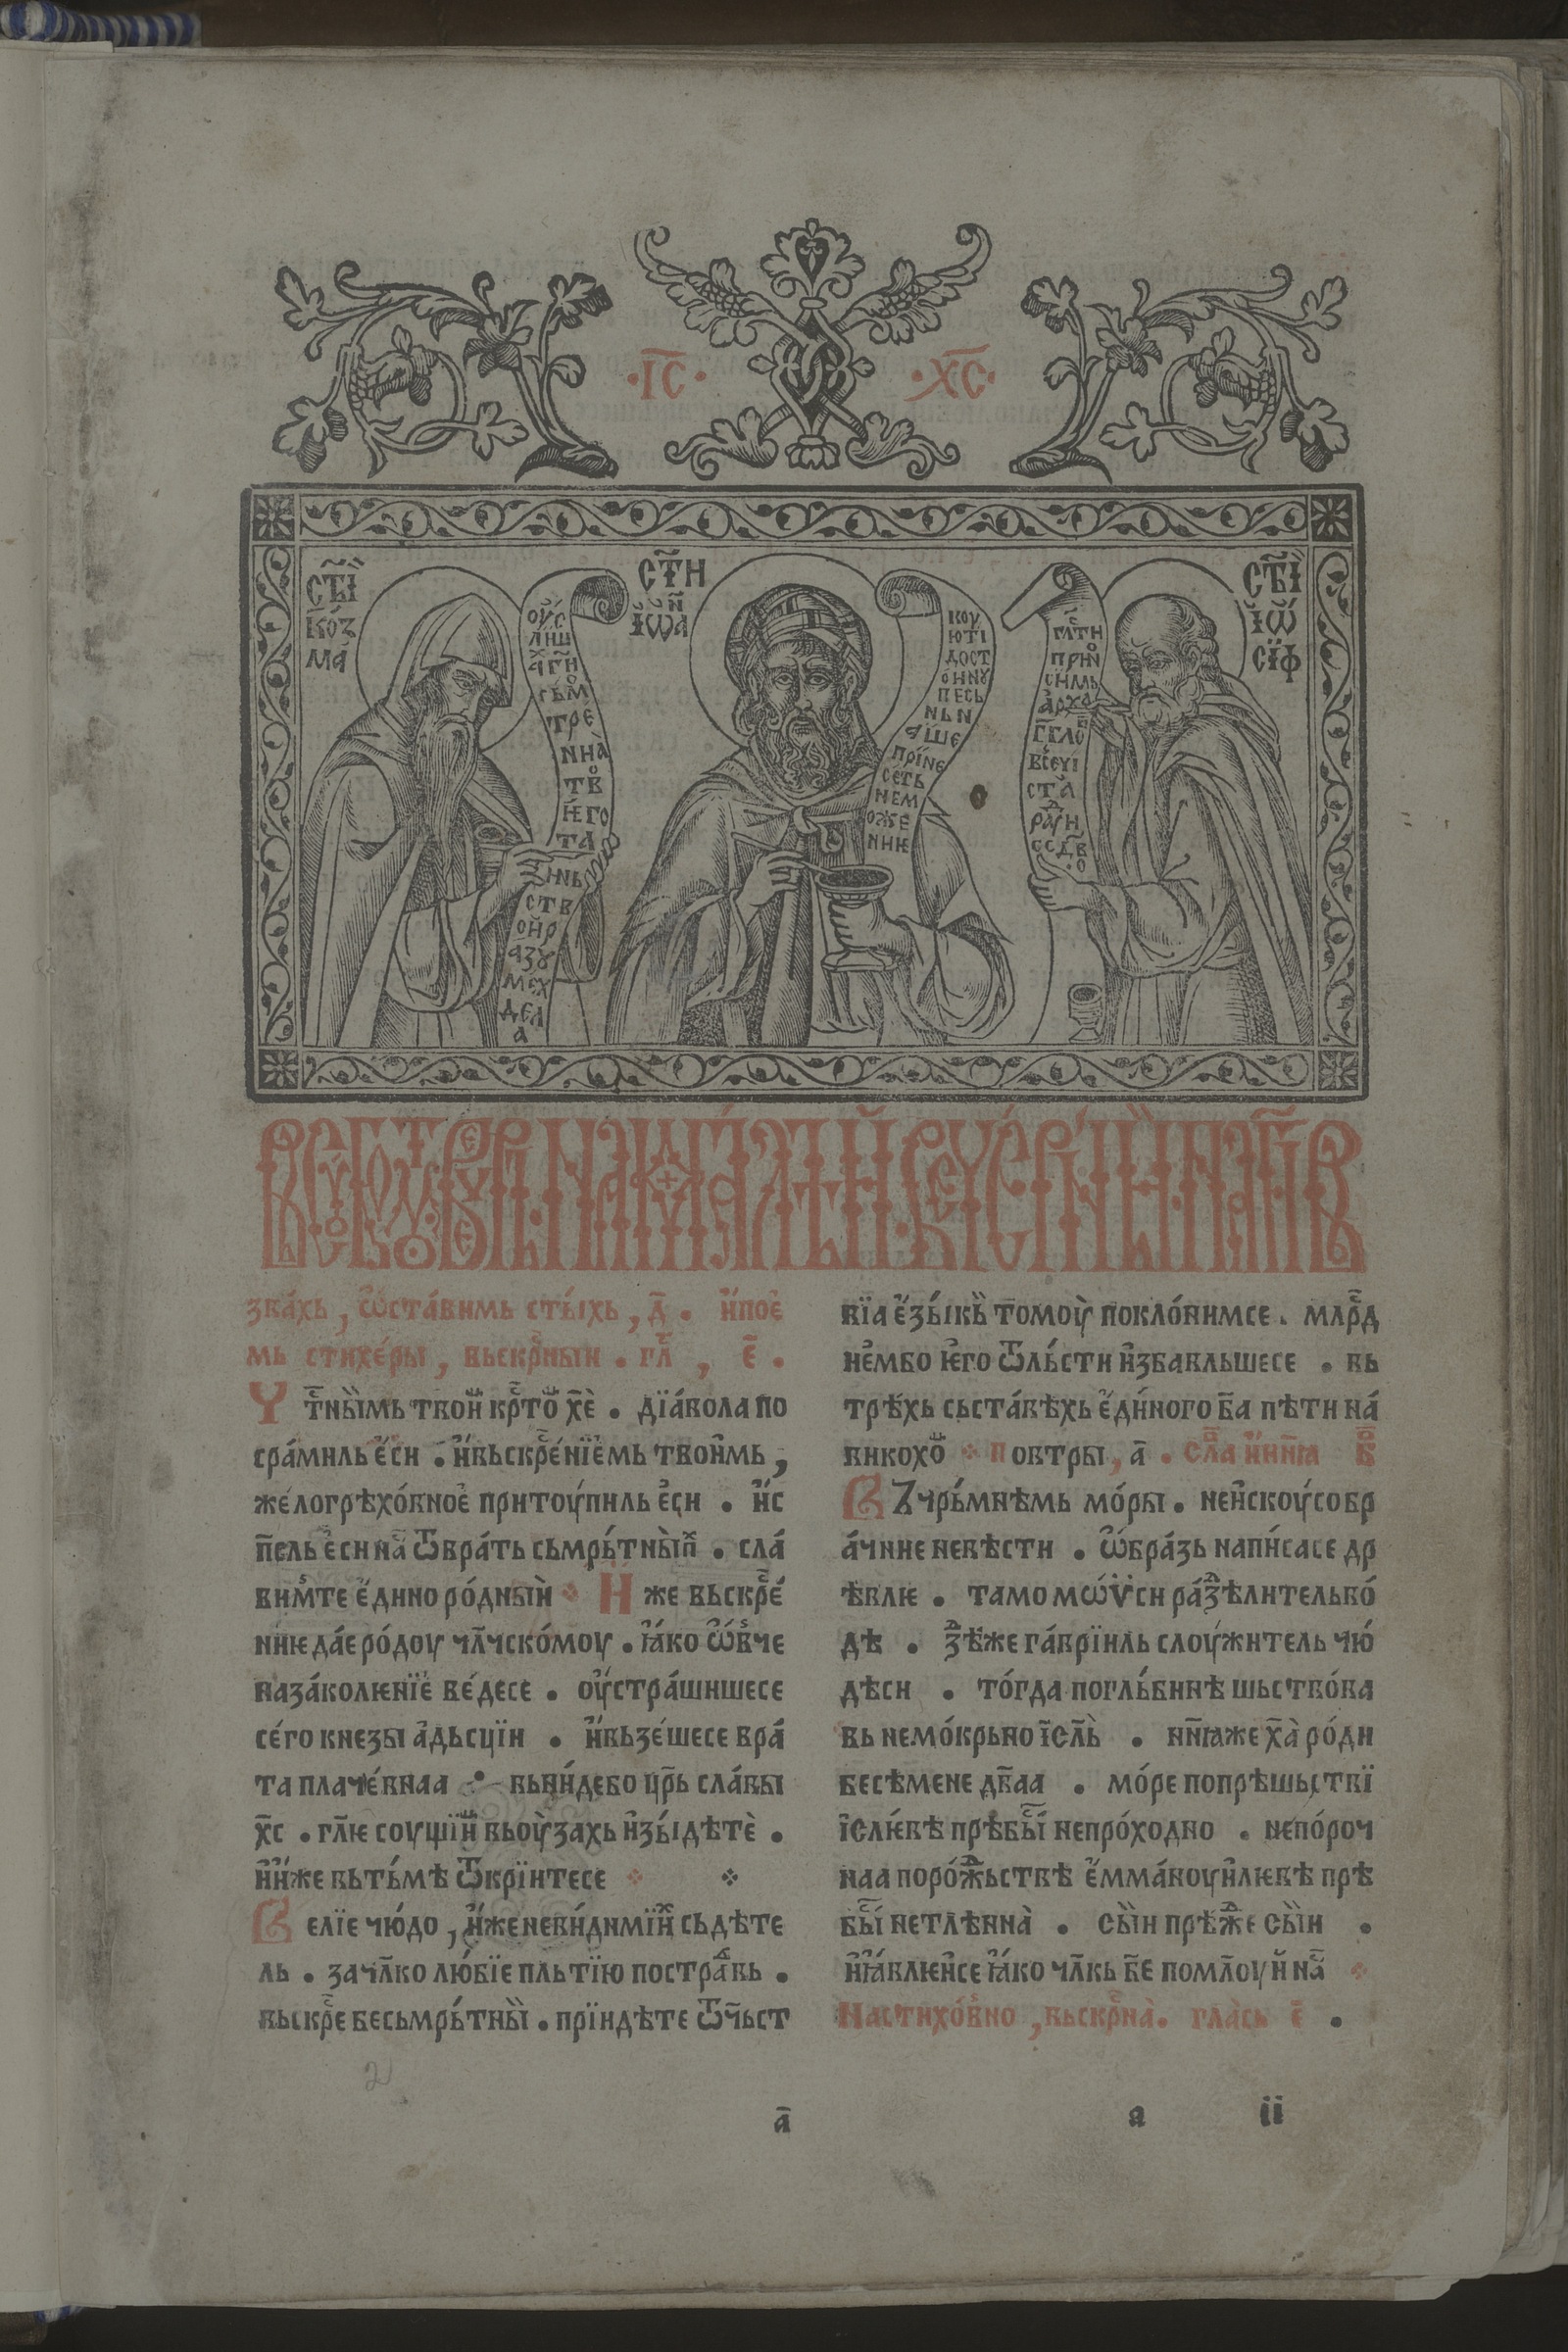 ·І҃С· ·Х҃С·
СТ҃Ы
КО́З
МА́
СТ҃И
ІѠ҆А
СТ҃Ы
ІѠ҆
СИ́Ф
ТРЕ́
НИА̀
ТВ
И҆ГО
ТА
ИНЬ
СТВ
ОИ҆Р
АЗꙊ
МЕХ
ДЕЛ
А
КОУ
ЮТІ
ДОСТ
О́ИНꙊ
ПЕСЬ
НЬ Н
А́ШЕ
ПРЇНЕ
СЕТЬ
НЕМ
ОЖЕ
НИѤ
зва́хь , ѡ҆ста́вимь сты́хь , д҃ . и҆́пое҆
мь стихе́ры , вьскрⷭ҇ныи . глⷭ҇ , е҃ .
Ч тⷭ҇ны́имь твои҆ⷨ крⷭ҇то̑ⷨ х҃ѐ . дїа́вола по
сра́миль е҆́си . и҆́вьскрⷭ҇е́нїе҆мь твои҆мь ,
же́логрѣхо́вное҆ притоу́пиль е҆си . и҆́с
п҃сль е҆́си на́ⷭ ѿвра́ть сьмрь́тны̀иⷯ . сла́
вим҆те е҆́дино ро́дныѝ И҆́ же вьскрⷭ҇е́
ниѥ да́е ро́доу чл҃чско́моу . ꙗ҆́ко ѡ҆́в҆че
наза́колѥнїе҆ ве́десе . оу҆́стра́шишесе
се́го кнезы а҆́дьсции . и҆́вьзе́шесе вра́
та плаче́внаа . вьни́дебо цр҃ь сла́вы
х҃с . гл҃ѥ соущїи҆ⷨ вьоу҆̀захь и҆зы́дѣтѐ .
и҆и҆́же вьть́мѣ ѿкрїитесе
В елїе чю́до , и҆́женеви́димїи҆ⷯ сьдѣте
ль . зачл҃ко лю́бїе пльтїю постра́ⷣвь .
вьскрⷭ҇е бесьмрь́тны̏и . прїидѣте ѿч҃ьст
вїа е҆́зы́кь̏ томоу̀ покло́нимсе . млрⷭ҇д
не҆мбо ѥ҆го ѿль́сти и҆збавльшесе . вь
трѣ́хь сьста́вѣхь е҆́ди́ного б҃а пѣти на́
викохо̑ⷨ повтры , а҃ . сла́ⷡ и҆́нн҃ꙗ б҃ⷪ
В Ꙁчрь́мнѣмь мо́ры . неи҆скоу́собр
а́чиие невѣсти . ѡ҆́бра́зь напи́сасе др
ѣвлѥ . тамо мѡѵ̈си ра́ⷥⷣѣлительво́
дѣ . зⷣѣже га́врїиль слоу́житель чю́
дѣси . то́гда погль́бинѣ шьство́ва
вь немо́крьно і҃сл҃ь̀ . нн҃ꙗже х҃а̀ ро́ди
бесѣ́мене дв҃аа . мо́ре попрѣшьствї
і҆слѥ́вѣ прѣбы́ⷭ непро́ходно . непо́роч
наа поро́жⷣьствѣ е҆́мма́ноуи҆лѥвѣ прѣ
бы́ⷭ нетлѣнна̀ . сы̏и прѣжⷣе сы̏и .
и҆ꙗ҆́влѥи҆се ꙗ҆́ко чл҃кь б҃е помл҃оуи̏ на́ⷭ
Настихо́в҆но , вьскрⷭ҇на̀ . гла̀сь е҃ .
а҃ а ii